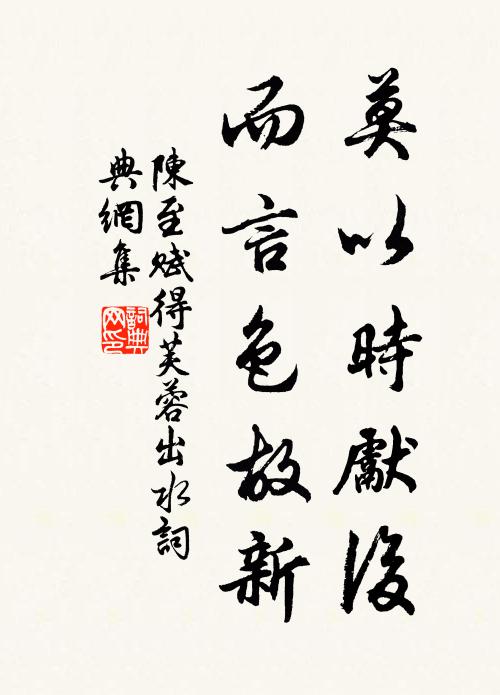 莫以時獻後
而言色故新
陳至賦得芙蓉出水詞
典網集
詞典网印